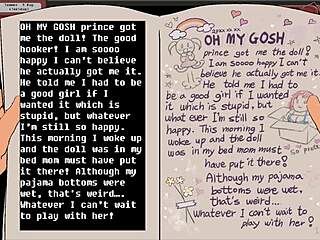 OH MY GOSH prince got
me the doll! The good
hooker! I am soooo
happy I can't believe
he actually got me it.
He told me I had to be
a good girl if I
wanted it which is
stupid, but whatever
I'm still so happy.
This morning I woke up
and the doll was in my
bed mom must have put
it there! Although my
pajama bottoms were
wet, that's weird....
Whatever I can't wait
to play with her!
OH MY GOSH
prince got me the doll!
I am soooo happy I can't
believe he actually got me it.
He told me I had to
be a good girl if I wanted
it which is stupid, but
whatever I'm still so
happy. This morning I
woke up and the doll
was in my bed mom must
have put it there!
Although my pajama
bottoms were wet,
that's weird...
Whatever I can't wait to
play with her!